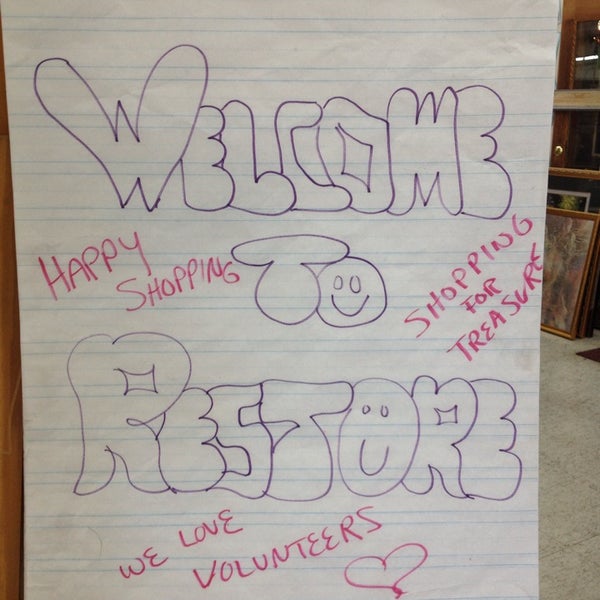 WELCOME
HAPPY
SHOPPING
TO
SHOPPING
FOR
TREASURE
RESTORE
WE LOVE
VOLUNTEERS